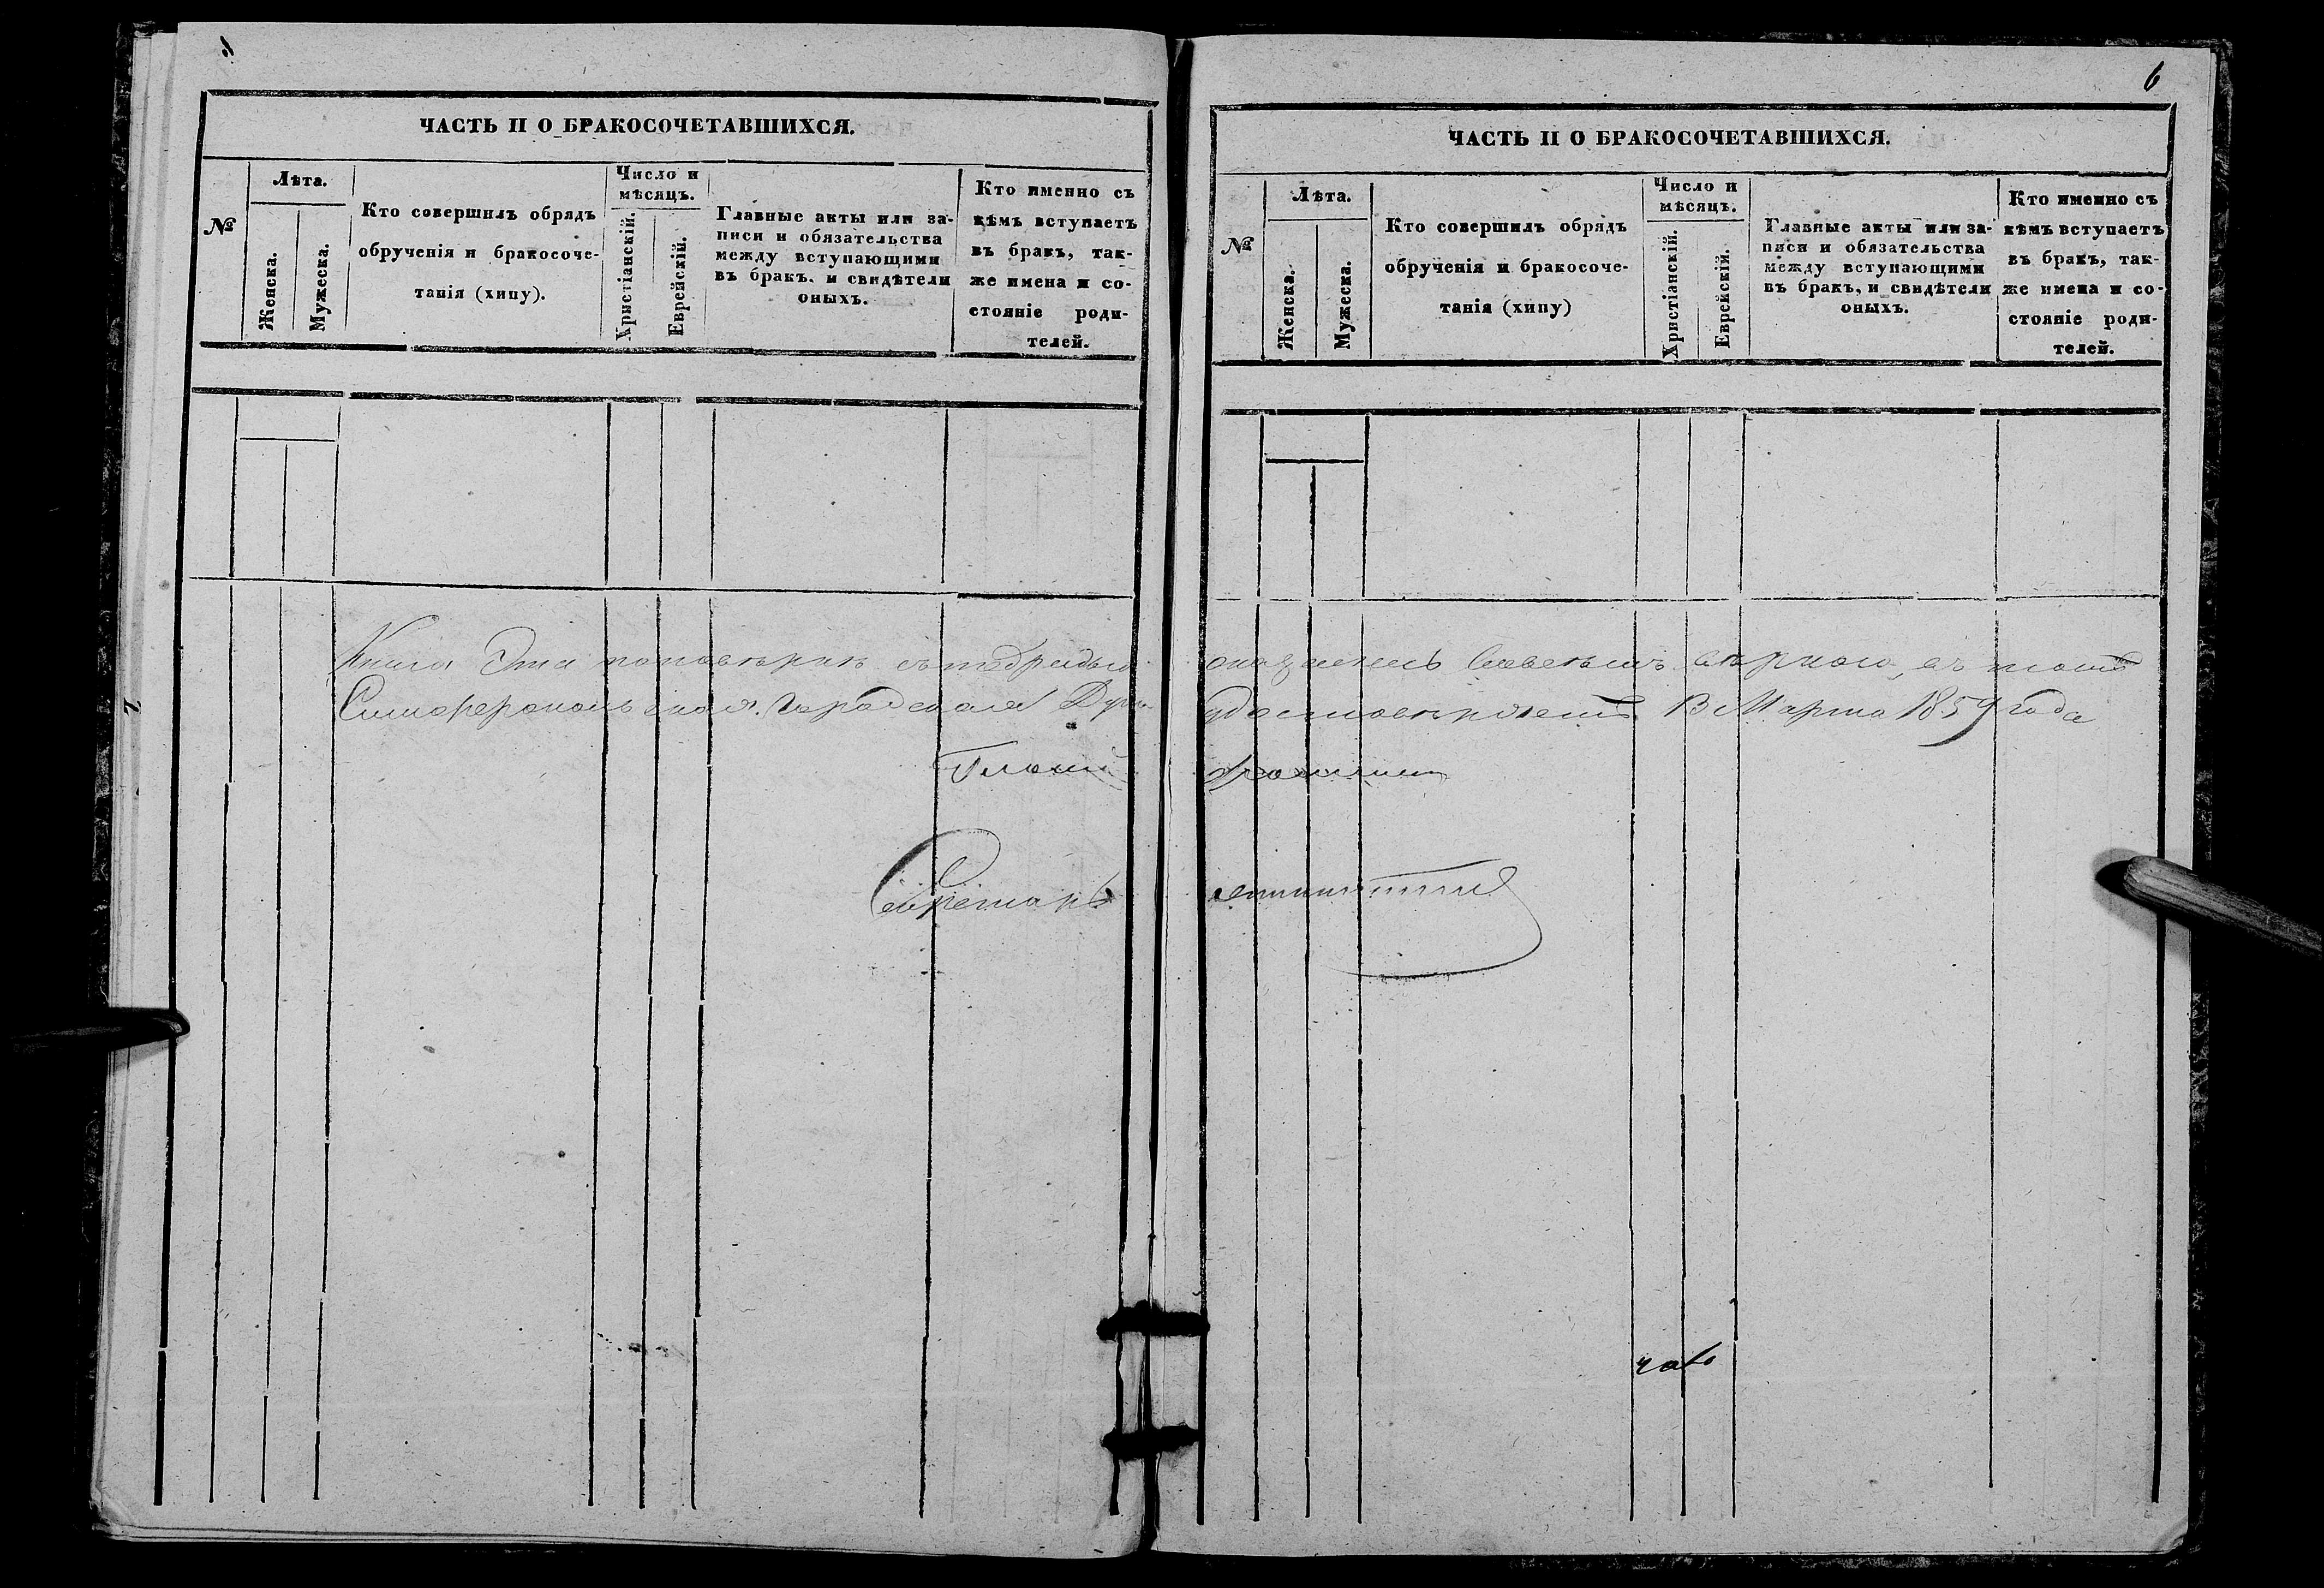 6
ЧАСТЬ II О БРАКОСОЧЕТАВШИХСЯ.
№
Лѣта.
Женска.
Мужеска.
Кто совершилъ обрядъ
обрученія и бракосоче-
танія (хипу).
Число и
мѣсяцъ.
Христіанскій.
Еврейскій.
Главные акты или за-
писи и обязательства
между вступающими
въ бракъ. и свидѣтели
оныхъ.
Кто именно съ
кѣмъ вступаетъ
въ бракъ, так-
же имена и со-
стояніе роди-
телей.
ЧАСТЬ II О БРАКОСОЧЕТАВШИХСЯ.
№
Лѣта.
Женска.
Мужеска.
Кто совершилъ обрядъ
обрученія и бракосоче-
танія (хипу)
Число и
мѣсяцъ.
Христіанскій.
Еврейскій.
Главные акты или за-
писи и обязательства
между вступающими
въ бракъ, и свидѣтели
оныхъ.
Кто именно съ
кѣмъ вступаетъ
въ бракъ, так-
же имена и со-
стояніе роди-
телей.
Книга Эта по повѣркѣ съ тетрадью оказалась Совсѣмъ вѣрною, въ томъ
Симферопольская Городская Дума удостовѣряетъ 13 Марта 1859 года
Секретарь